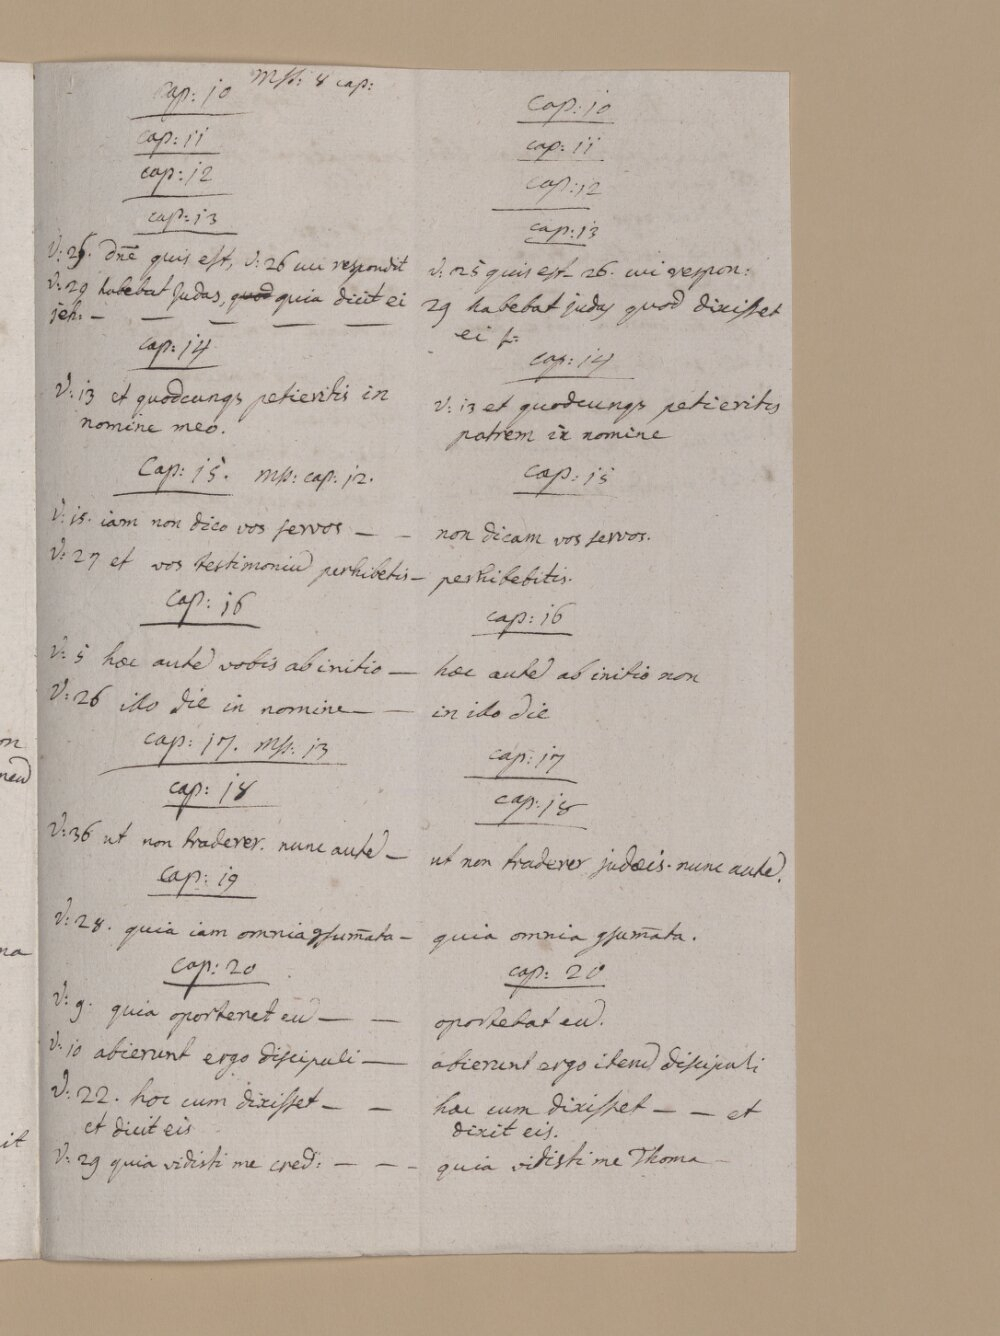 Cap: 10 Mss: 8 cap:
cap: 11
cap: 12
cap: 13
V: 25. Dn̄e quis est, V: 26 cui respondit
V: 29 habebat Judas, quod quia dicit ei
jeh: — — — — —
cap: 14
V: 13 et quodcunq petieritis in
nomine meo.
Cap: 15. Mss: cap: 12.
V: 15. iam non dico vos servos — —
V: 27 et vos testimoniu perhibetis —
cap: 16
V: 5 hæc aute vobis ab initio —
V: 26 illo die in nomine — —
cap: 17. Mss: 13
cap: 18
V: 36 ut non traderer. nunc aute —
Cap: 19
V: 28. quia iam omnia 9sum̄ata —
Cap: 20
V: 9. quia oporteret eu — —
V: 10 abierunt ergo discipuli —
V: 22. hoc cum dixisset — —
et dicit eis
V: 29 quia vidisti me cred: — — -
Cap: 10
cap: 11
cap: 12
cap: 13
V: 25 quis est 26. cui respon:
29 habebat judas quod dixisset
ei
cap: 14
V: 13 et quodcunq petieritis
patrem in nomine
cap: 15
non dicam vos servos.
perhibebitis.
cap: 16
hæc aute ab initio non
in illo die
cap: 17
cap: 18
ut non traderer judæis. nunc aute.
quia omnia 9sum̄ata.
cap: 20
oportebat eu.
abierunt ergo iteru discipuli
hæc cum dixisset — — et
dixit eis.
quia vidisti me Thoma